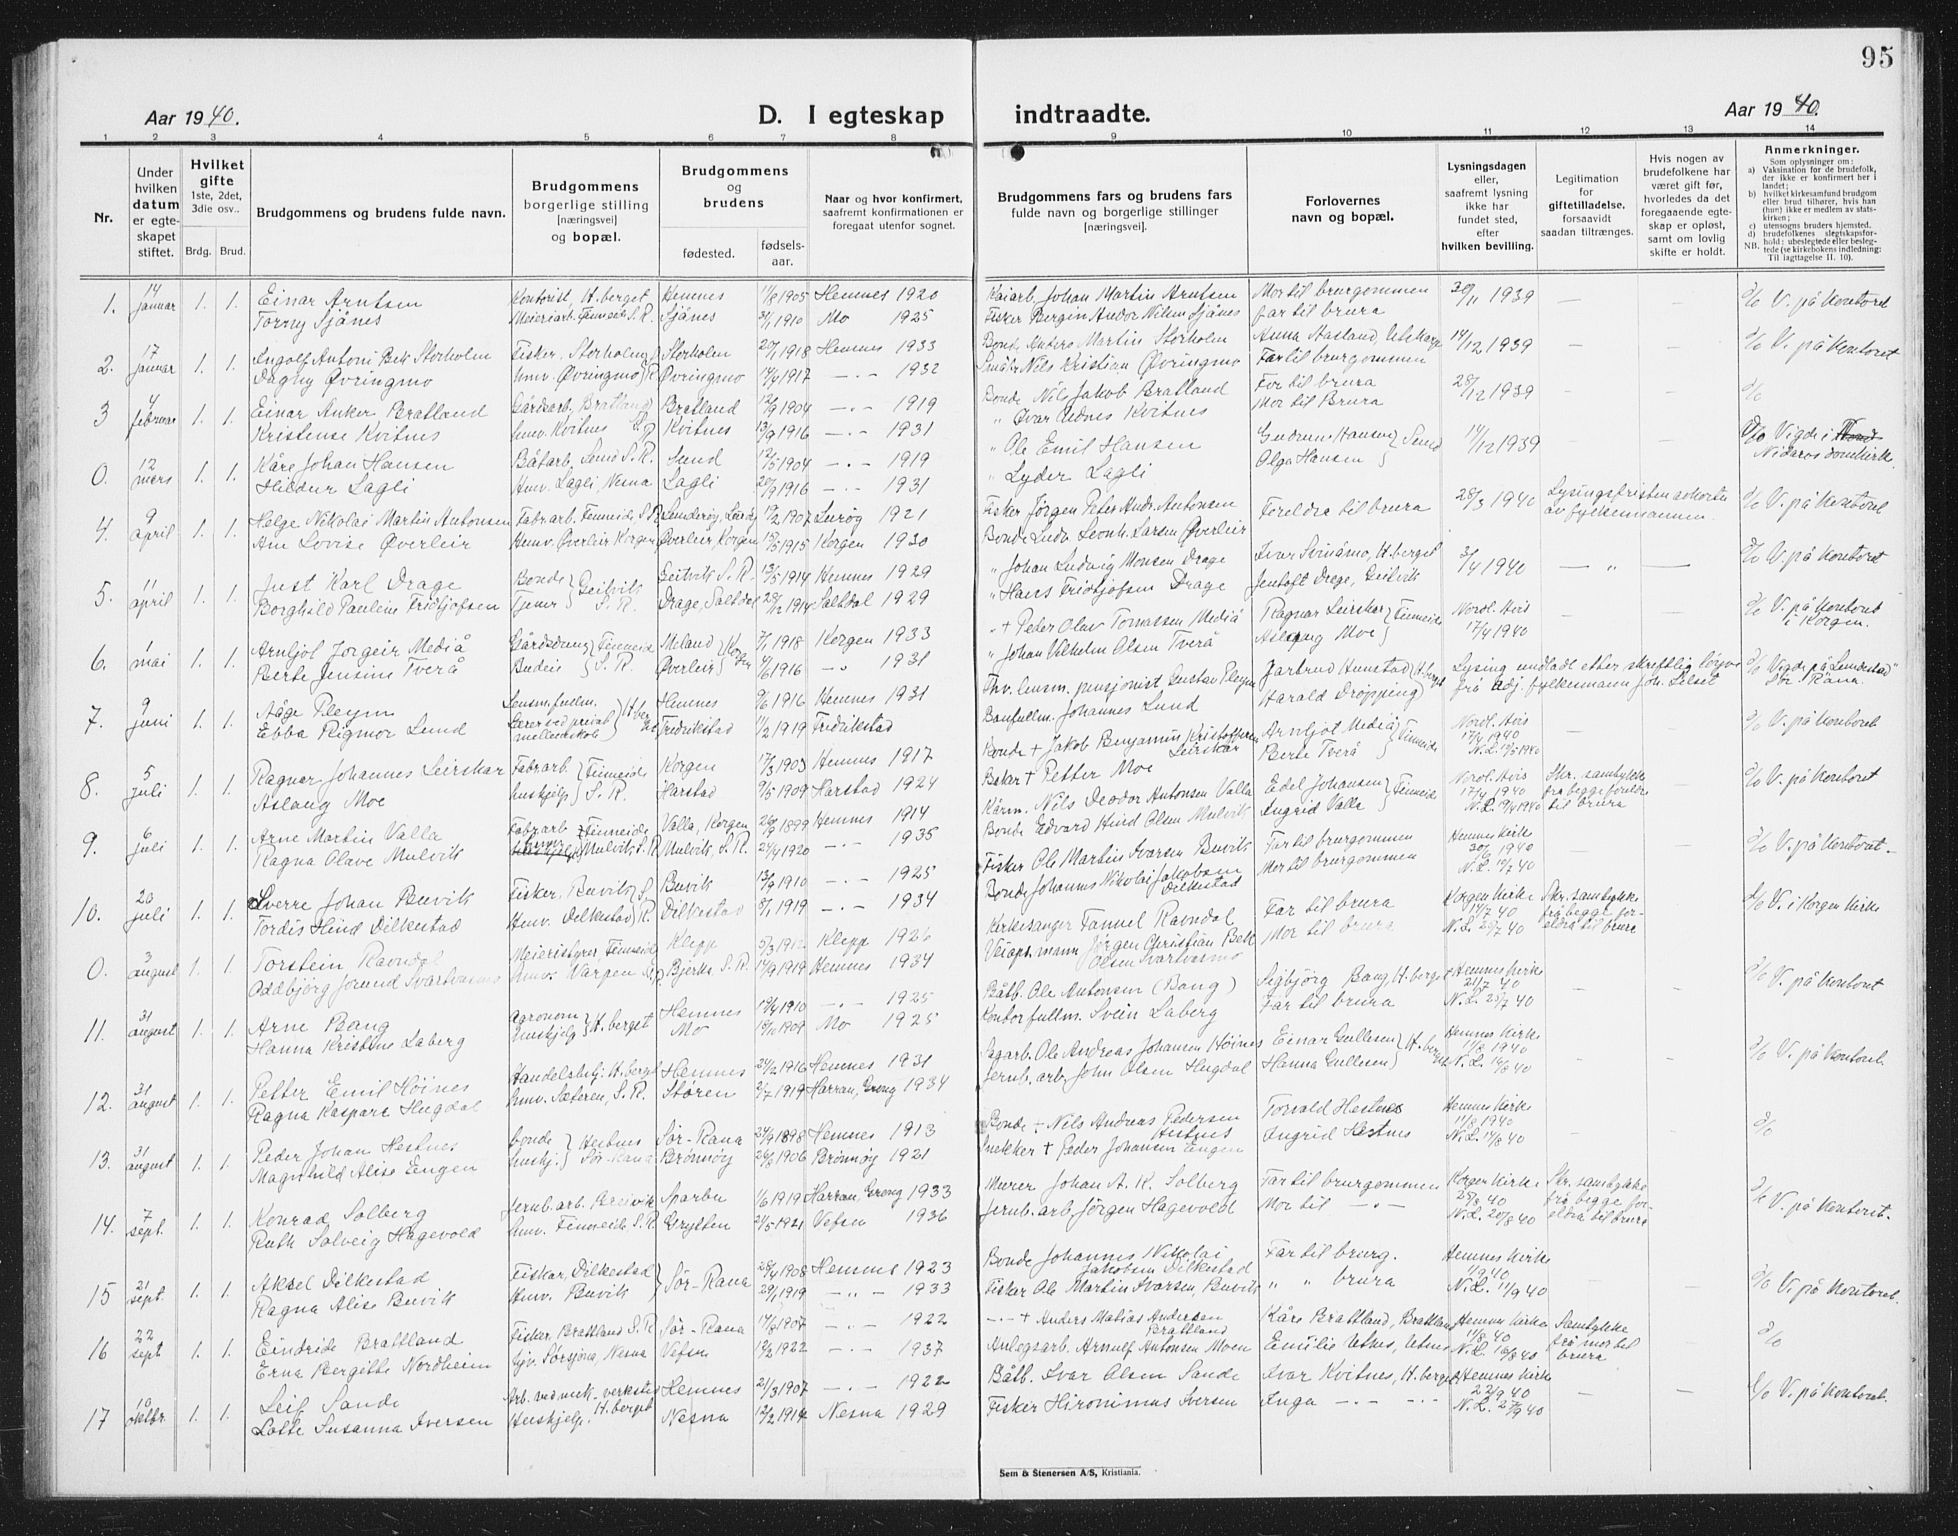 95
Aar 1940.
D. I egteskap indtraadte.
Aar 1940.
1 2 3 4 5 6 7 8 9 10 11 12 13 14
Nr.
Under hvilken datum er egteskapet stiftet.
Hvilket gifte 1ste, 2det, 3die osv..
Brdg. Brud.
Brudgommens og brudens fulde navn.
Brudgommens borgerlige stilling [næringsvei] og bopæl.
Brudgommens og brudens
fødested.
fødsels-aar.
Naar og hvor konfirmert, saafremt konfirmationen er foregaat utenfor sognet.
Brudgommens fars og brudens fars fulde navn og borgerlige stillinger [næringsvei].
Forlovernes navn og bopæl.
Lysningsdagen eller, saafremt lysning ikke har fundet sted, efter hvilken bevilling.
Legitimation for giftetilladelse, forsaavidt saadan tiltrænges.
Hvis nogen av brudefolkene har været gift før, hvorledes da det foregaaende egteskap er opløst, samt om lovlig skifte er holdt.
Anmerkninger.
Som oplysninger om:
a) Vaksination for de brudefolk, der ikke er konfirmert her i landet;
b) hvilket kirkesamfund brudgom eller brud tilhører, hvis han (hun) ikke er medlem av statskirken;
c) utensogns bruders hjemsted.
d) brudefolkenes slegtskapsforhold: ubeslegtede eller beslegtede (se kirkebokens indledning: Til iagttagelse II. 10).
NB.
1. 14 januar 1. 1. Einar Arntsen Kontorist, H.berget Hemnes 11/8 1905 Hemnes 1920 Kaiarb. Johan Martin Arntsen Mor til brurgommen 30/11 1939 — — % V. på kontoret
Torny Sjånes Meieriarb. Finneide S.R. Sjånes 3/1 1910 Mo 1925 Fisker Bergin Andor Nilsen Sjånes far til brura
2. 17 januar 1. 1. Ingolf Antoni Bek Storholm Fisker, Storholmen Storholm 20/1 1918 Hemnes 1933 Bonde Anders Martin Storholm 14/12 1939 — — % V. på kontoret
Dagny Øvringmo Hmv. Øvringmo Øvringmo 14/4 1917 —.— 1932 Nils Kristian Øvringmo Far til brurgommen
3 4 februar 1. 1. Einar Anker Bratland Gårdsarb. Bratland Bratland 12/9 1904 —.— 1919 Bonde Nils Jakob Bratland Far til brura 28/12 1939 — — %
Kristense Kvitnes Hmv. Kvitnes Kvitnes 13/9 1916 —.— 1931 " Ivar Utnes Kvitnes Mor til Brura
0. 12 mars 1. 1. Kåre Johan Hansen Båtarb. Sund S.R. Sund 12/5 1904 —.— 1919 " Ole Emil Hansen Gudrun Hansen 14/12 1939 % Vigde i Nidaros domkirk.
Hildur Lagli Hmv. Lagli, Nesna Lagli 20/9 1916 —.— 1931 " Lyder Lagli Olga Hansen Sund
4. 9 april 1. 1. Helge Nikolai Martin Antonsen Fabrarb. Finneide, S.R. 19/2 1907 Lurøy 1921 Fisker Jörgen Peter Andr. Antonsen Foreldra til brura 28/3 1940 Lysingsfristen avkorta av fylkesmannen % V. på kontoret
Ane Lovise Øverleir Hmv. Øverleir Korgen Øverleir, Korgen 15/5 1915 Korgen 1930 Bonde Ludv. Leonh. Larsen Øverleir
5. 11 april 1. 1. Just Karl Drage Bonde Geitvik S.R. Geitvik S.R. 13/5 1914 Hemnes 1929 " Johan Ludvig Monsen Drage Ivar Svinåmo, H.berget 3/4 1940 — " — % V. på kontoret
Borghild Pauline Fridtjofsen Tjener Drage, Saltdal 28/12 1914 Saltdal 1929 " Hans Fridtjofsen Drage Jentoft Drage, Geitvik
6. 1 mai 1. 1. Arnljot Jorgeir Mediå Gårdsdreng Finneide S.R. Meland Korgen 7/1 1918 Korgen 1933 " + Peder Olav Tomassen Mediå Ragnar Leirskar Finneide Nordl. Avis 17/4 1940 % V. på kontoret i Korgen.
Berte Jensine Tverå Budeie Øverleir 4/6 1916 —"— 1931 " Johan Vilhelm Olsen Tverå Aslaug Moe
7. 9 juni 1. 1. Aage Pleym Lensm.fullm. H.berget Hemnes 9/6 1916 Hemnes 1931 Fhv. lensm. pensjonist Gustav Pleym Harald Dröpping H.berget Lysing undladt etter skriftlig löyve frå adj. fylkesmann % Vigde på "Lundestad" Sör-Rana.
Ebba Rigmor Lund Lærer ved privat mellemskole Fredrikstad 11/2 1919 Fredrikstad Banfullm. Johannes Lund
8. 5 juli 1. 1. Ragnar Johannes Leirskar Fabrarb. Finneide S.R. Korgen 17/3 1903 Hemnes 1917 Bonde + Jakob Benjamin Kristoffersen Leirskar Arnljot Mediå Finneide Nordl. Avis 17/4 1940 N.L. 1940 % V. på kontoret
Aslaug Moe huskjelp Harstad 9/5 1909 Harstad 1924 + Petter Moe Berte Tverå
9. 6 juli 1. 1. Arne Martin Valla Fabrarb Finneide Valla, Korgen 1899 Hemnes 1914 Nils Deodor Antonsen Valla Edel Johansen Finneide Nordl. Avis 17/4 1940 N.L. 19/4 1940 Skr. samtykke fra begge foreldre til brura % V. på kontoret
Ragna Olave Mulvik Mulvik S.R. Mulvik, S.R. 24/4 1920 —.— 1935 Bonde Edvard Hind Olsen Mulvik Ingrid Valla
10. 20 juli 1. 1. Sverre Johan Buvik Fisker, Buvik S.R. Buvik 13/9 1910 —.— 1925 Fisker Ole Martin Ivarsen Buvik Far til brurgommen Hemnes kirke 1940 N.L. 11/7 40 — — % V. på kontoret
Tordis Hind Dilkestad Hmv. Dilkestad Dilkestad 8/1 1919 —.— 1934 Bonde Johannes Nikolai Jakobsen Dilkestad Mor til brurgommen
0. 3 august 1. 1. Torstein Ravndal Meieristyrer, Finneide Klepp 5/3 1912 Klepp 1926 Kirkesanger Samuel Ravndal Far til brura Korgen kirke 14/7 40 N.L. 20/7 40 Skr. samtykke frå begge foreldra til brura % V. i Korgen kirke
Oddbjørg Jorund Svartvasmo hmv. Varpen S.R. Bjerka, S.R. 14/9 1919 Hemnes 1934 Veiopt.mann Jørgen Christian Bek Olsen Svartvasmo Mor til brura
11. 31 august 1. 1. Arne Bang Agronom H.berget Hemnes 19/4 1910 —.— 1925 Båtb. Ole Antonsen (Bang) Sigbjörg Bang, H.berget Hemnes kirke 21/7 40 N.L. 25/7 40 — — % V. på kontoret
Hanna Kristine Laberg huskjelp Mo 19/11 1909 Mo 1925 Kontorfullm. Svein Laberg Far til brura
12. 31 august 1. 1. Petter Emil Höines Handelsbetj. H.berget Hemnes 24/2 1916 Hemnes 1931 Sagarb. Ole Andreas Johansen Höines Einar Gullesen H.berget Hemnes kirke 11/8 1940 N.L. 14/8 40 — — % V. på kontoret.
Ragna Kaspara Hugdal hmv. Sæteren, S.R. Stören 2/7 1919 Harran, Grong 1934 Jernb.arb. John Olsen Hugdal Hanna Gullesen
13. 31 august 1. 1. Peder Johan Hestnes bonde Hestnes Sör-Rana Sör-Rana 24/9 1898 Hemnes 1913 Bonde + Nils Andreas Pedersen Hestnes Torvald Hestnes Hemnes kirke 11/8 1940 N.L. 14/8 40 — — %
Magnhild Alise Engen huskj. Brönnöy 26/6 1906 Brönnöy 1921 Snekker + Peder Johansen Engen Ingrid Hestnes
14. 7 sept. 1. 1. Konrad Solberg Jernb.arb. Sparbu 1/6 1919 Harran, Grong 1933 Murer Johan A. K. Solberg Far til brurgommen Korgen kirke 25/8 40 N.L. 20/8 40 Skr. samtykke frå begge foreldra til brura % V. på kontoret.
Ruth Solveig Hagevold hmv. Finneide S.R. Grytten 24/5 1921 Vefsn 1936 Jernb.arb. Jörgen Hagevold Mor til —.—
15 21 sept. 1. 1. Aksel Dilkestad Fiskar, Dilkestad Sör-Rana 28/4 1908 Hemnes 1923 Bonde Johannes Nikolai Jakobsen Dilkestad Far til brurg. Hemnes kirke 1/9 40 N.L. 11/9 40 — — % V. på kontoret.
Ragna Alise Buvik Hmv. Buvik 29/1 1919 —"— 1933 Fisker Ole Martin Ivarsen Buvik " " brura
16 22 sept 1. 1. Eindride Brattland Fisker, Brattland S.R. Sör-Rana 17/8 1907 —.— 1922 —.— + Anders Matias Andersen Brattland Kåre Brattland, Brattland Hemnes kirke 11/8 40 N.L. 16/8 40 Samtykke frå mor til brura %
Erna Bergitte Nordheim hjv. Sörsjona, Nesna Vefsn 19/2 1922 —.— 1937 Anlegsarb. Arnulf Antonsen Moen Emilie Utnes, Utnes
17 10 oktbr. 1. 1. Leif Sande Arb. ved mek. verksted H.berget Hemnes 21/3 1907 —.— 1922 Båtb. Ivar Olsen Sande Ivar Kvitnes, H.berget Hemnes kirke 22/9 40 N.L. 27/9 40 — — % V. på kontoret.
Lotte Susanna Iversen Huskjelp Nesna 12/2 1914 Nesna 1929 Fisker Hironimus Iversen Inga —.— —.—
Sem & Stenersen A/S, Kristiania.